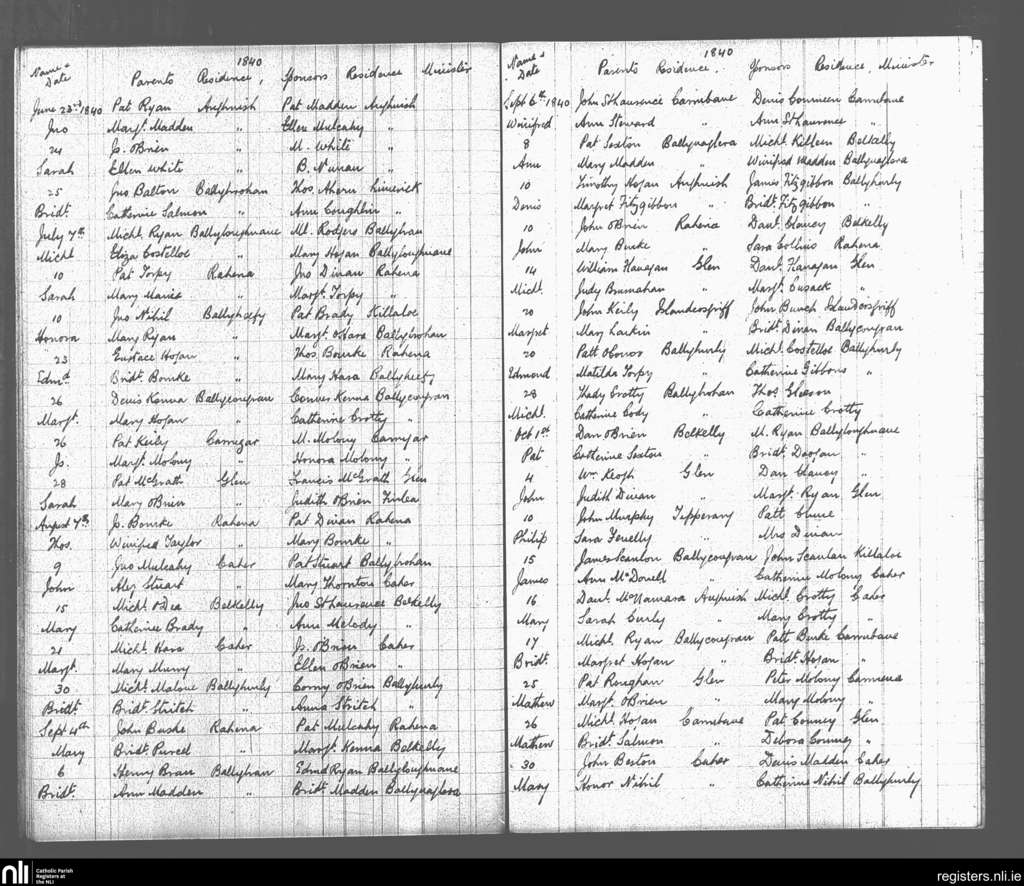 1840
Name & Date Parents Residence, Sponsors Residence Minister
June 23rd 1840 Pat Ryan Aughnish Pat Madden Aughnish
Jno Margt. Madden " Ellen Mulcahy "
24 Js. OBrien " M. White "
Sarah Ellen White " B. Nunan "
25 Jno Balton Ballybrohan Thos. Ahern Limerick
Bridt. Catherine Salmon " Ann Coughlin "
July 7th Michl. Ryan Ballyloughnane Ml. Rodgers Ballyhran
Michl Eliza Costelloe " Mary Hogan Ballyloughnane
10 Pat Torpy Rahena Jno Dinan Rahena
Sarah Mary " Margt. Torpy "
10 Jno Nihil Ballyheefy Pat Brady Killaloe
Honora Mary Ryan " Margt. OHara Ballybrohan
23 Eustace Hogan " Thos. Bourke Rahena
Edmd Bridt. Bourke " Mary Hara Ballyheefy
26 Denis Kenna Ballycougran Conner Kenna Ballycougran
Margt. Mary Hogan " Catherine Crotty "
26 Pat Keily Carrigar M. Molony Carrigar
Js. Margt. Molony " Honora Molony "
28 Pat McGrath Glen Francis McGrath Glen
Sarah Mary OBrien Judith OBrien Finlea
August 7th Js. Bourke Rahena Pat Dinan Rahena
Thos. Winifred Taylor " Mary Bourke "
9 Jno Mulcahy Caher Pat Stuart Ballybrohan
John Aley Stuart " Mary Thornton Caher
15 Michl. ODea Belkelly Jno StLaurence Belkelly
Mary Catherine Brady " Ann Melody "
21 Michl. Hara Caher Js. OBrien Caher
Margt. Mary Murry " Ellen OBrien "
30 Michl. Malone Ballyhurly Corny OBrien Ballyhurly
Bridt Bridt. Stritch " Anna Stritch "
Sept 4th John Burke Rahena Pat Mulcahy Rahena
Mary Bridt. Purcel " Margt. Kenna Belkelly
6 Henry Bran Ballyhran Edmd Ryan Ballyloughnane
Bridt. Ann Madden " Bridt. Madden Ballynaglera
1840
Name & Date Parents Residence. Sponsors Residence, Minister
Sept 6th 1840 John StLaurence Carnibane Denis Carnibane
Winifred Ann Steward " Ann StLaurence "
8 Pat Sexton Ballynaglera Michl. Killeen Belkelly
Ann Mary Madden " Winifred Madden Ballynaglera
10 Timothy Hogan Aughnish James Fitzgibbon Ballyhurly
Denis Margret Fitzgibbon " Bridt. Fitzgibbon "
10 John OBrien Rahena Danl. Clancy Belkelly
John Mary Burke " Sara Collins Rahena
14 William Flanagan Glen Danl. Flanagan Glen
Michl. Judy Brunnahan " Margt. Cusack "
20 John Keily Islandersgriff John Bunch Islandersgriff
Margret Mary Larkin " Bridt. Dinan Ballycougran
20 Patt OConor Ballyhurly Michl. Costelloe Ballyhurly
Edmond Matilda Torpy " Catherine Gibbons "
28 Thady Crotty Ballybrohan Thos. Gleeson
Michl. Catherine Cody " Catherine Crotty "
Oct 1st Dan OBrien Belkelly M. Ryan Ballyloughnane
Pat Catherine Sexton " Bridt. "
4 Wm. Keogh Glen Dan Clancy "
John Judith Dinan " Margt. Ryan Glen
10 John Murphy Tipperary Patt Clune "
Philip Sara " Mrs Dinan "
15 James Scanlan Ballycougran John Scanlan Killaloe
James Ann McDonell " Catherine Molony Caher
16 Danl. McNamara Aughnish Michl. Crotty Caher
Mary Sarah Curly " Mary Crotty "
17 Michl. Ryan Ballycougran Patt Burke Carnibane
Bridt. Margret Hogan " Bridt. Hogan "
25 Pat Roughan Glen Peter Molony
Mathew Margt. OBrien " Mary Molony "
26 Michl. Hogan Carnibane Pat Conney Glen
Mathew Bridt. Salmon " Debora Conney "
30 John Berton Caher Denis Madden Caher
Mary Honor Nihil " Catherine Nihil Ballyhurly
nli Catholic Parish Registers at the NLI
registers.nli.ie